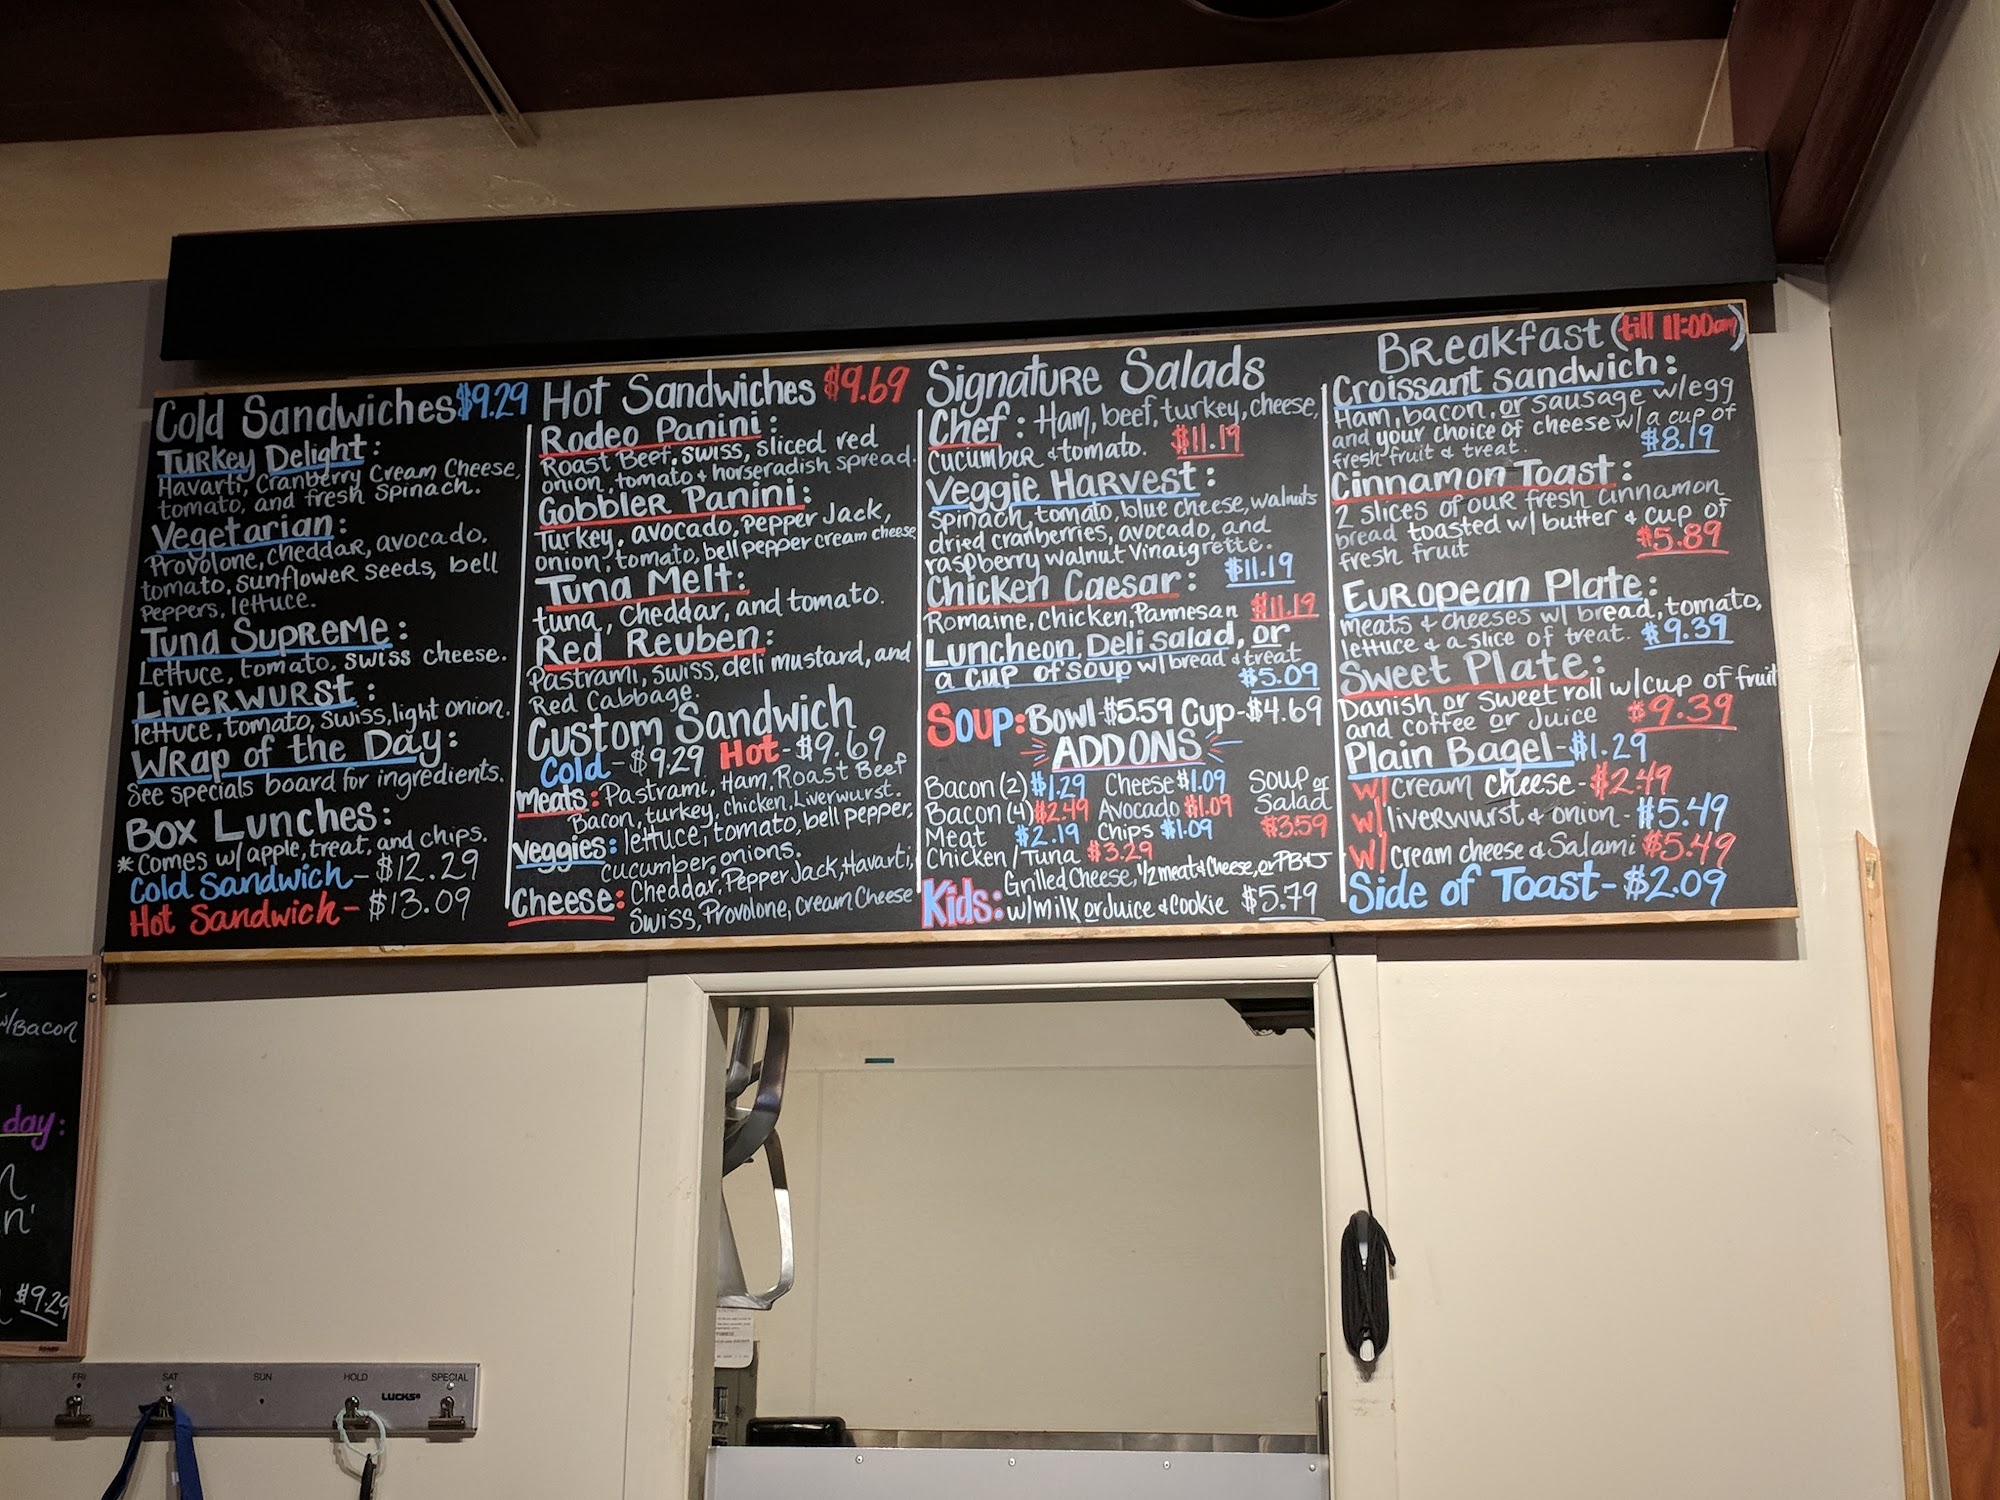 Cold Sandwiches $9.29
Turkey Delight:
Havarti, Cranberry Cream Cheese,
tomato, and fresh spinach.
Vegetarian:
Provolone, cheddar, avocado,
tomato, sunflower seeds, bell
peppers, lettuce.
Tuna Supreme:
Lettuce, tomato, swiss cheese.
Liverwurst:
lettuce, tomato, swiss, light onion.
Wrap of the Day:
See specials board for ingredients.
Box Lunches:
*Comes w/ apple, treat, and chips.
Cold Sandwich - $12.29
Hot Sandwich - $13.09
Hot Sandwiches $9.69
Rodeo Panini:
Roast Beef, swiss, sliced red
onion, tomato + horseradish spread.
Gobbler Panini:
Turkey, avocado, pepper Jack,
onion, tomato, bell pepper cream cheese
Tuna Melt:
tuna, Cheddar, and tomato.
Red Reuben:
Pastrami, swiss, deli mustard, and
Red Cabbage.
Custom Sandwich
Cold - $9.29 Hot - $9.69
Meats: Pastrami, Ham, Roast Beef
Bacon, turkey, chicken, Liverwurst.
Veggies: lettuce, tomato, bell pepper,
cucumber, onions.
Cheese: Cheddar, Pepper Jack, Havarti,
Swiss, Provolone, Cream Cheese
Signature Salads
Chef: Ham, beef, turkey, cheese,
cucumber & tomato. $11.19
Veggie Harvest:
Spinach, tomato, blue cheese, walnuts
dried cranberries, avocado, and
raspberry walnut vinaigrette.
$11.19
Chicken Caesar:
Romaine, chicken, Parmesan $11.19
Luncheon, Deli salad, or
a cup of soup w/ bread & treat
$5.09
Soup: Bowl - $5.59 Cup - $4.69
ADD ONS
Bacon (2) $1.29 Cheese $1.09 Soup or
Bacon (4) $2.49 Avocado $1.09 Salad
Meat $2.19 Chips $1.09 $3.59
Chicken / Tuna $3.29
Grilled Cheese, 1/2 meat & Cheese, or PB & J
Kids: w/ milk or Juice & Cookie $5.79
Breakfast (till 11:00am)
Croissant sandwich:
Ham, bacon, or sausage w/ egg
and your choice of cheese w/ a cup of
fresh fruit & treat. $8.19
Cinnamon Toast:
2 slices of our fresh cinnamon
bread toasted w/ butter & cup of
fresh fruit $5.89
European Plate:
Meats & cheeses w/ bread, tomato,
lettuce & a slice of treat. $9.39
Sweet Plate:
Danish or sweet roll w/ cup of fruit
and coffee or Juice $9.39
Plain Bagel - $1.29
w/ cream cheese - $2.49
w/ liverwurst & onion - $5.49
w/ cream cheese & Salami $5.49
Side of Toast - $2.09
w/ Bacon
day:
n'
$9.29
FRI SAT SUN HOLD LUCKS SPECIAL